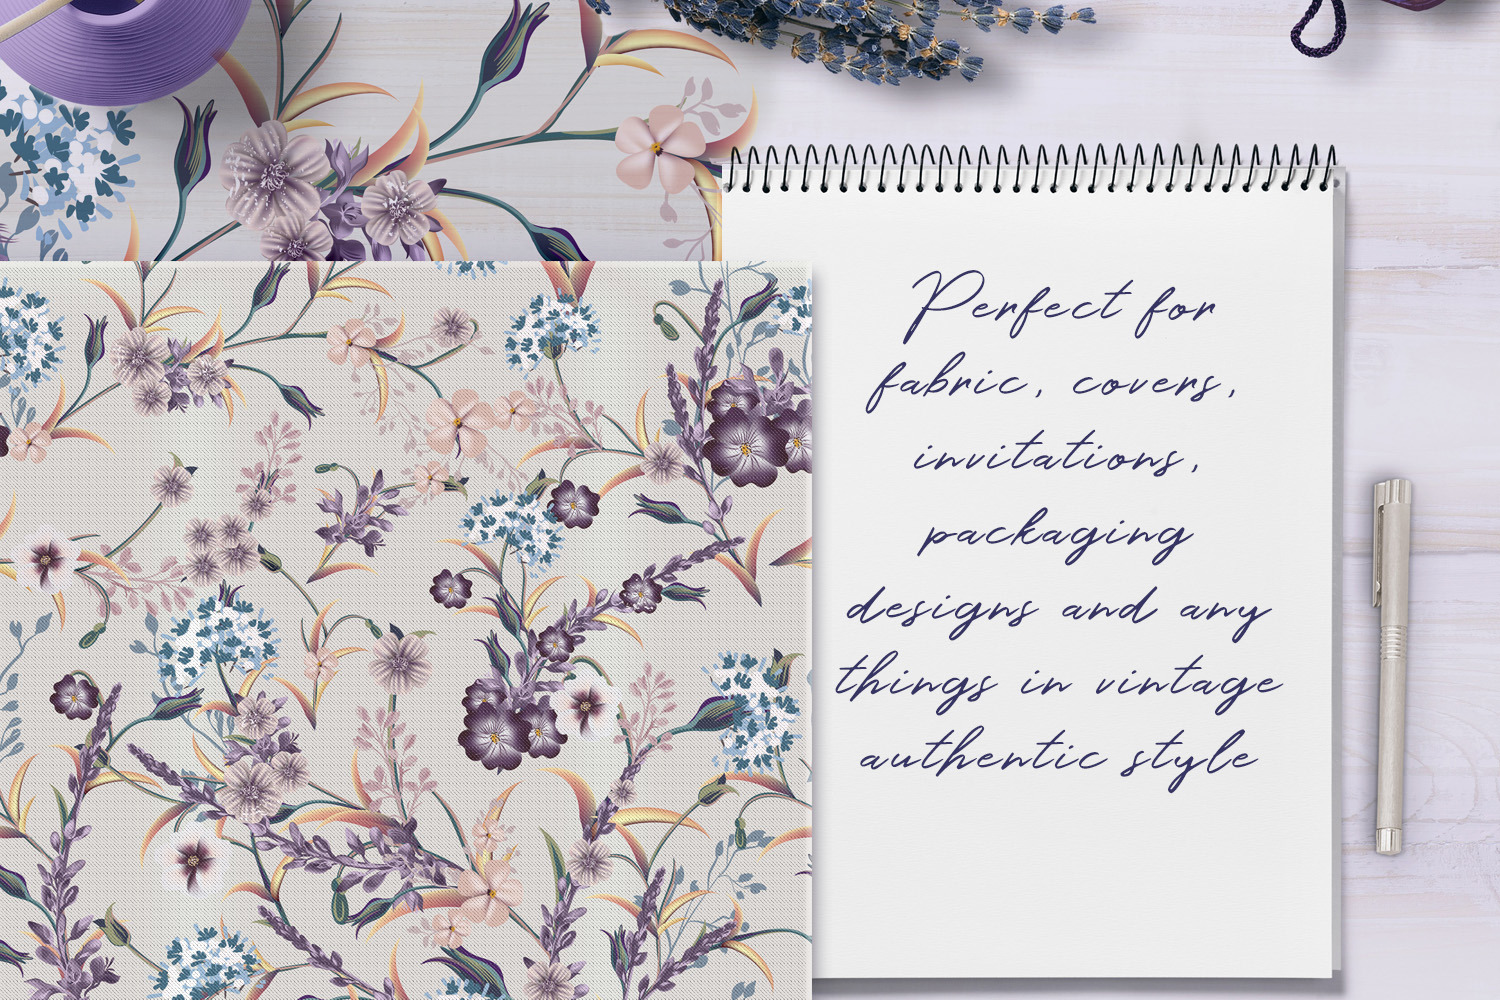 Perfect for
fabric, covers,
invitations,
packaging
designs and any
things in vintage
authentic style